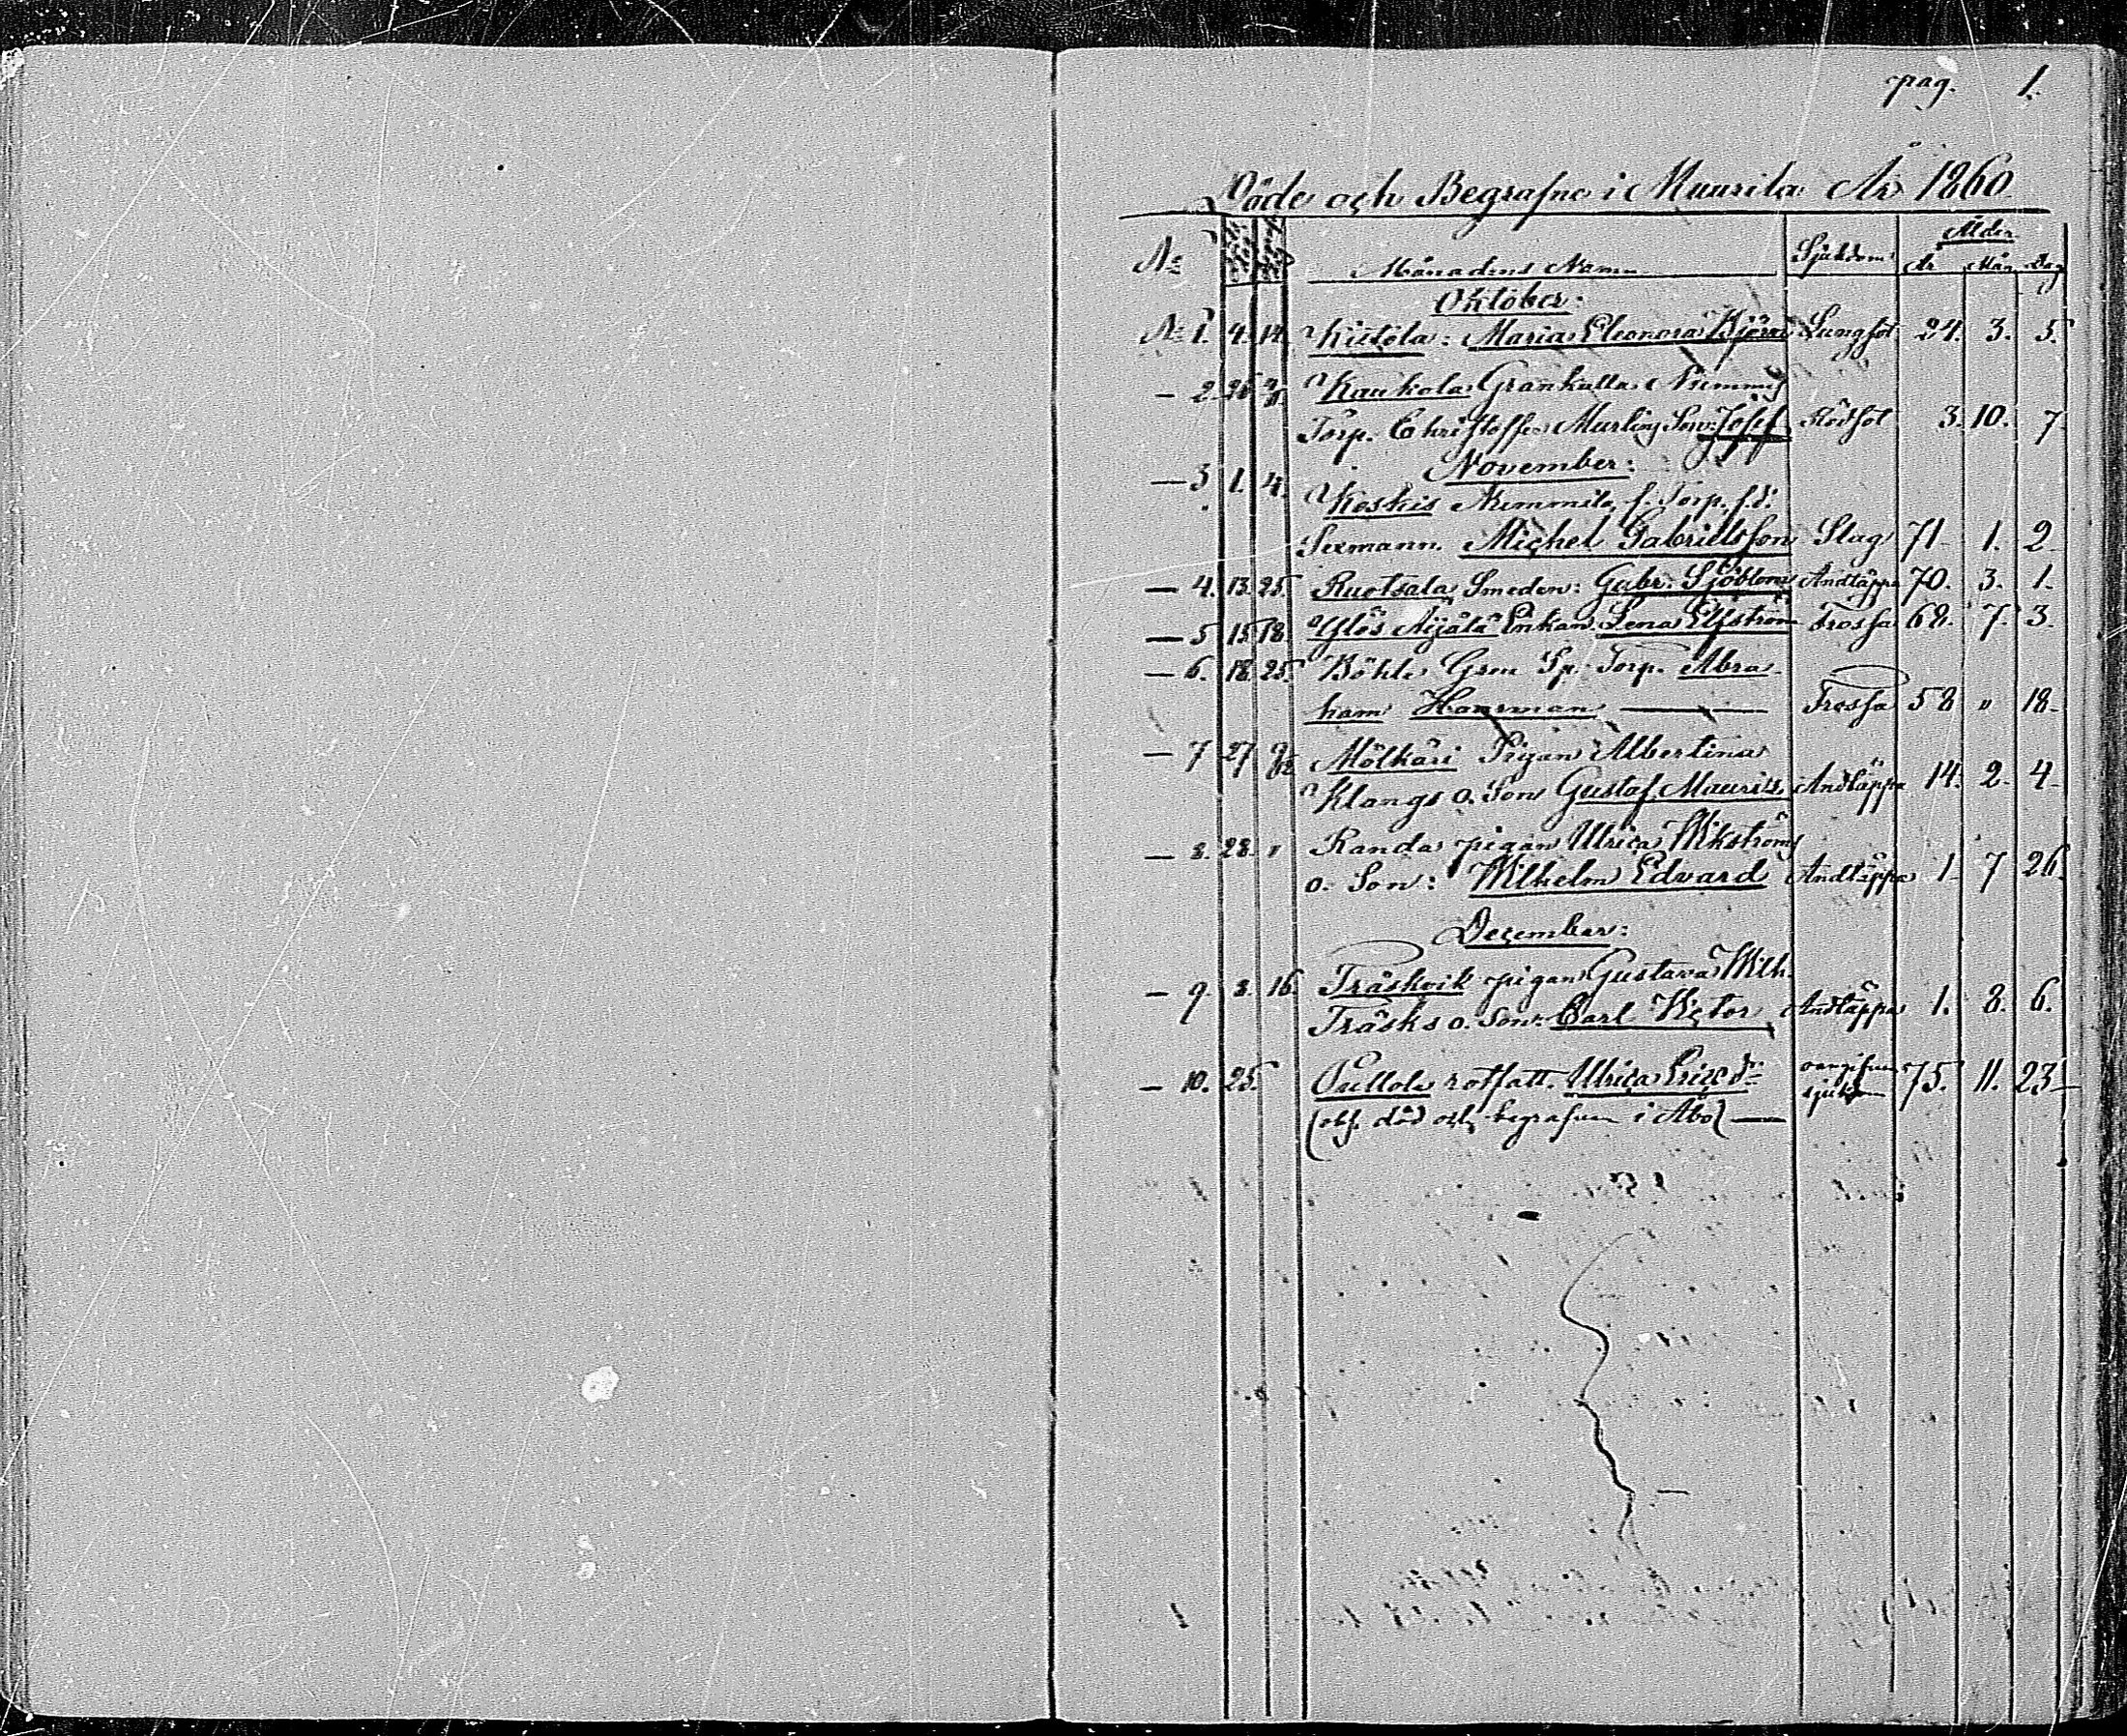 pag. 1.
Döde och Begrafne i Muurila År 1860
No Månadens Namn Sjukdom Ålder
År Mån Dag
Oktober.
No 1. 4. 14. Kiilola: Maria Eleonora Björn Lungsot 24. 3. 5.
— 2. 26 Kaukola Grankulla
Torp. Christoffer Murling Son: Josef Rödsot 3. 10. 7.
November:
— 3 1. 4. Koskis f. Torp. f.d.
Sexmann. Michel Gabrielsson Slag 71 1. 2
— 4. 13. 25. Ruotsala Smeden: Gabr. Sjöblom Andtäppa 70. 3. 1.
— 5 15 18. Ylös Äijälä Enkan Lena Elfström Frossa 68. 7. 3.
— 6. 18. 25. Böhle Torp. Abra
ham Hausman — Frossa 58 " 18.
— 7 27 2/12 Mölkäri Pigan Albertina
Klangs o. Son Gustaf Maurits Andtäppa 14. 2. 4.
— 8. 28. " Randa pigan Ulrica Wikströms
o. Son: Wilhelm Edvard Andtäppa 1 7 26.
December:
— 9. 8. 16 Träskvik pigan Gustava Wilh.
Träsks o. Son: Carl Victor Andtäppa 1. 8. 6.
— 10. 25. Pullola rotfatt. Ulrica Ericsdr oangifven
sjukdom 75. 11. 23
(obs. död och begrafven i Åbo) —